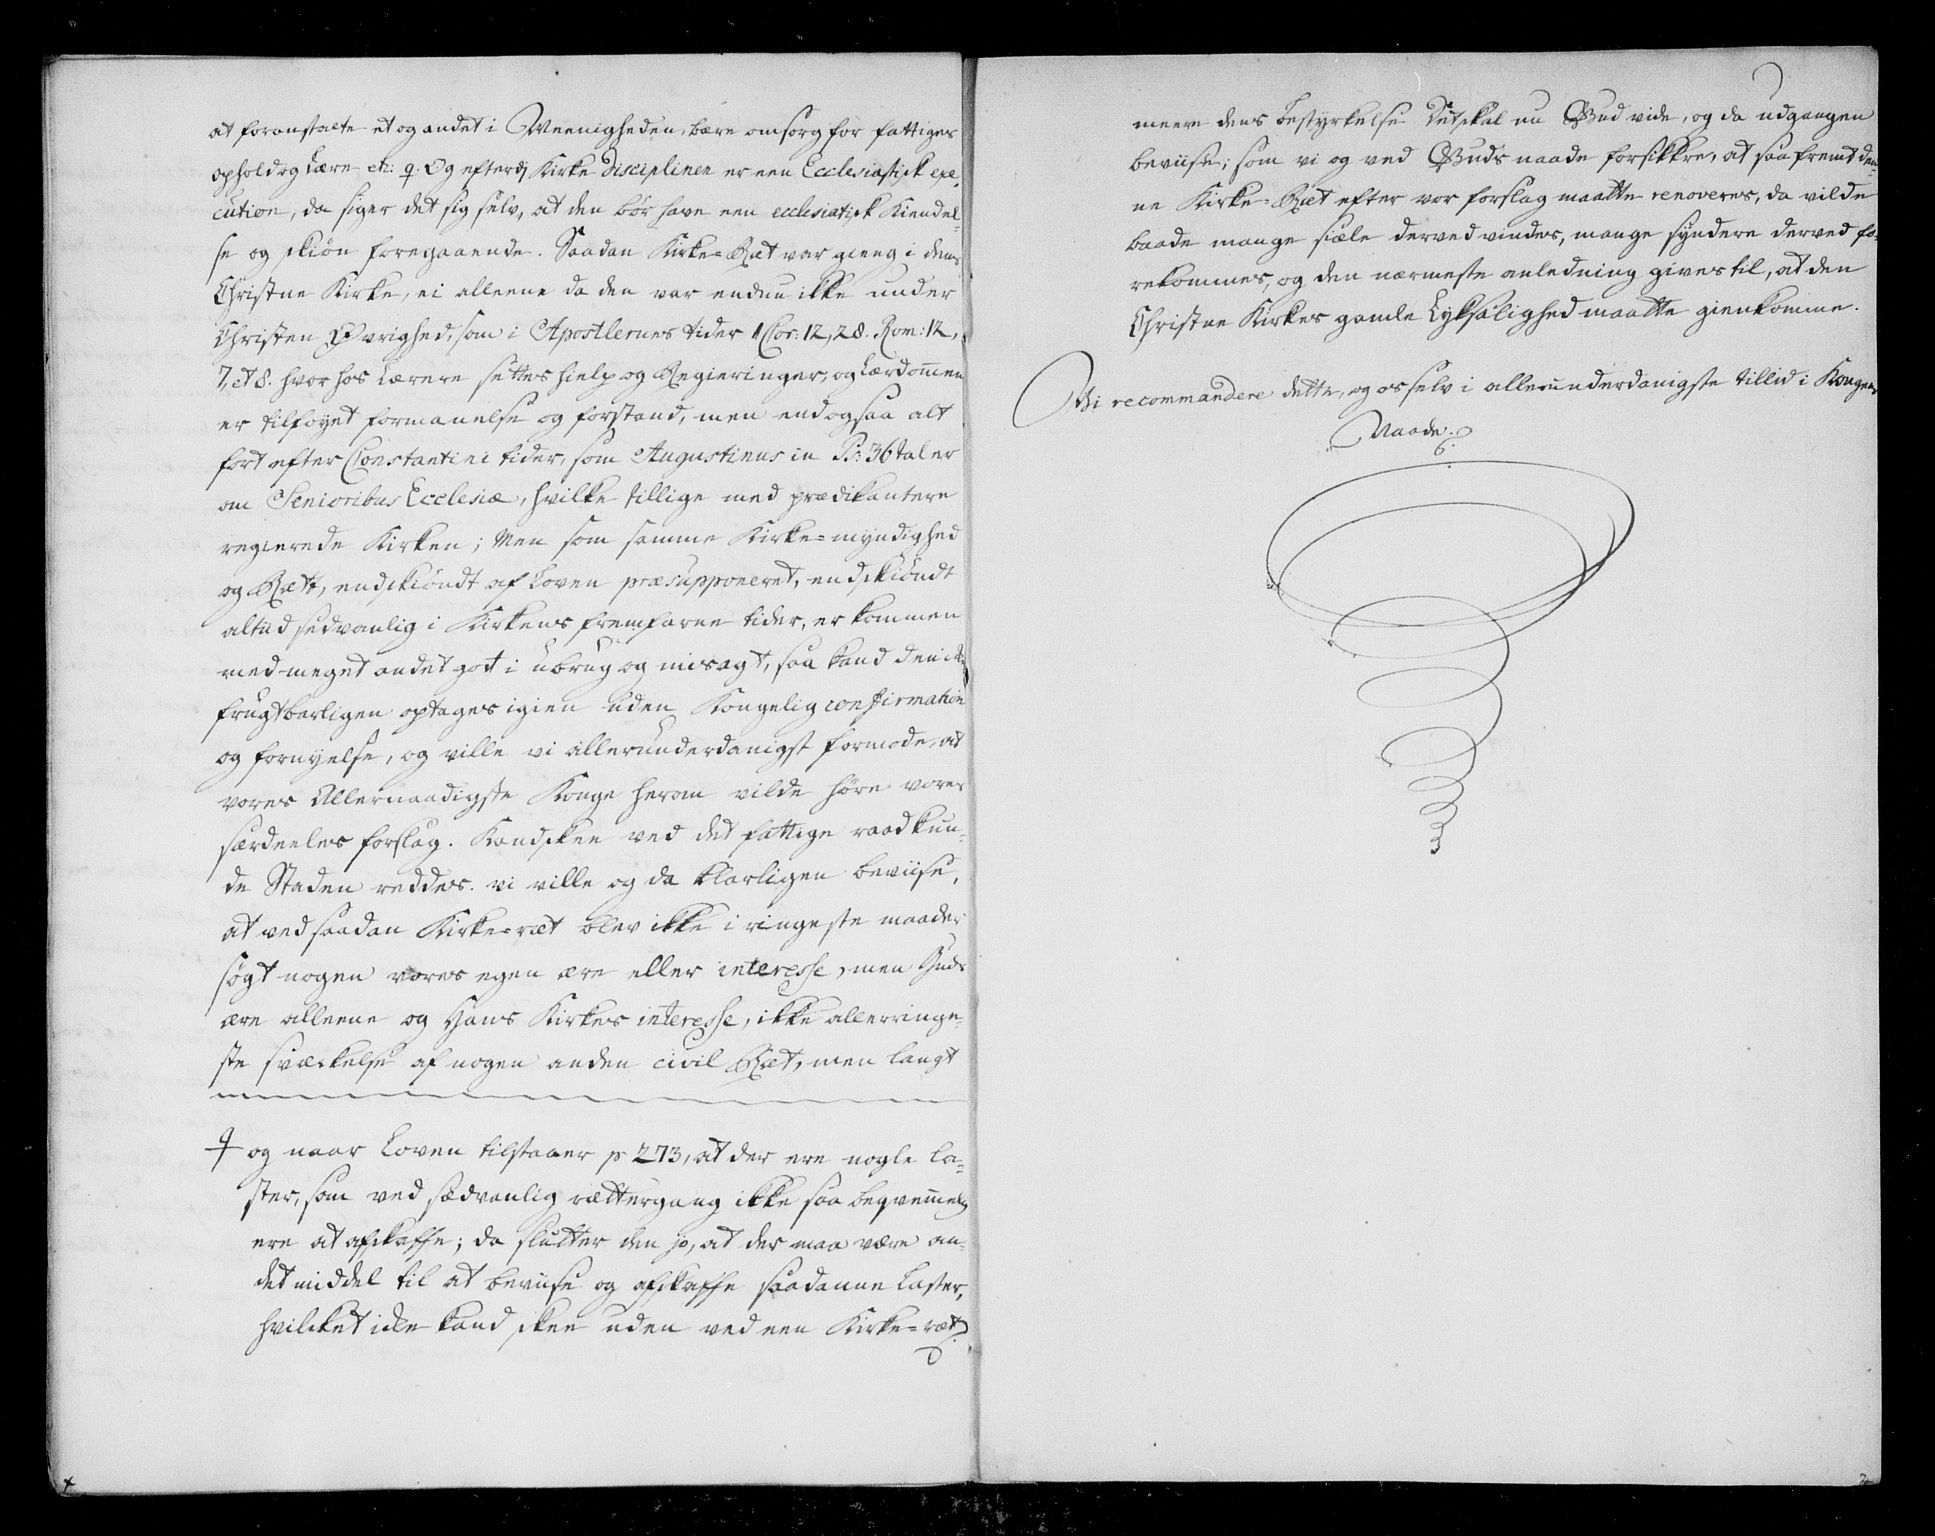 at foranstalte et og andet i Meenigheden, bære omsorg for fattiges
ophold og Lære etc: ⚲. Og efterdj Kirke Disciplinen er een Ecclesiastisk exe-
cution, da siger det sig selv, at den bør have een ecclesiatisk Kiendel-
se og skiøn foregaaende. Saadan Kirke-Ræt var gieng i den
Christne Kirke, ei alleene da den var endnu ikke under
Christen Øvrighed, som i Apostlernes tider 1 Cor: 12, 28. Rom: 12,
7, et 8. hvor hos Lærere settes hielp og Regieringer, og Lærdommen
er tilføyet formanelse og forstand, men endogsaa alt
fort efter Constantini tider, som Augustinus in Ps: 36 taler
om Senioribus Ecclesiæ, hvilke tillige med prædikantere
regierede Kirken; Men som samme Kirke-myndighed
og Rætt, endskiøndt af Loven præsupponeret, endskiøndt
altiid sedvanlig i Kirkens fremfarne tider, er kommen
med meget andet got i ubrug og misagt, saa kand den ikke
frugtbarligen optages igien uden Kongelig confirmation
og fornyelse, og ville vi allerunderdanigst formode, at
vores Allernaadigste Konge herom vilde høre vores
særdeeles forslag. Kandskee ved det fattige raad kun-
de Staden reddes. vi ville og da klarligen beviise,
at ved saadan Kirke-ræt blev ikke i ringeste maader
søgt nogen vores egen ære eller interesse, men Guds
ære alleene og Hans Kirkes interesse, ikke allerringe-
ste sværkelse af nogen anden civil Ræt, men langt
⚲ og naar Loven tilstaaer p 273, at der ere nogle La-
ster, som ved sædvanlig rættergang ikke saa beqvemmelig
ere at afskaffe; da slutter den jo, at der maa være an-
det middel til at beviise og afskaffe saadanne Laster,
hvilcket icke kand skee uden ved een Kirke-ræt.
meere dens bestyrkelse Det skal nu Gud vide, og da udgangen
beviise; som vi og ved Guds naade forsikkre, at saafremt den-
ne Kirke-Ræt efter vor forslag maatte renoveres, da vilde
baade mange siæle derved vindes, mange syndere derved fo-
rekommes, og den nærmeste anledning gives til, at den
Christne Kirkes gamle Lyksalighed maatte gienkomme.
Vi recommandere dette, og os selv i allerunderdanigste tillid i Kongens
Naade.